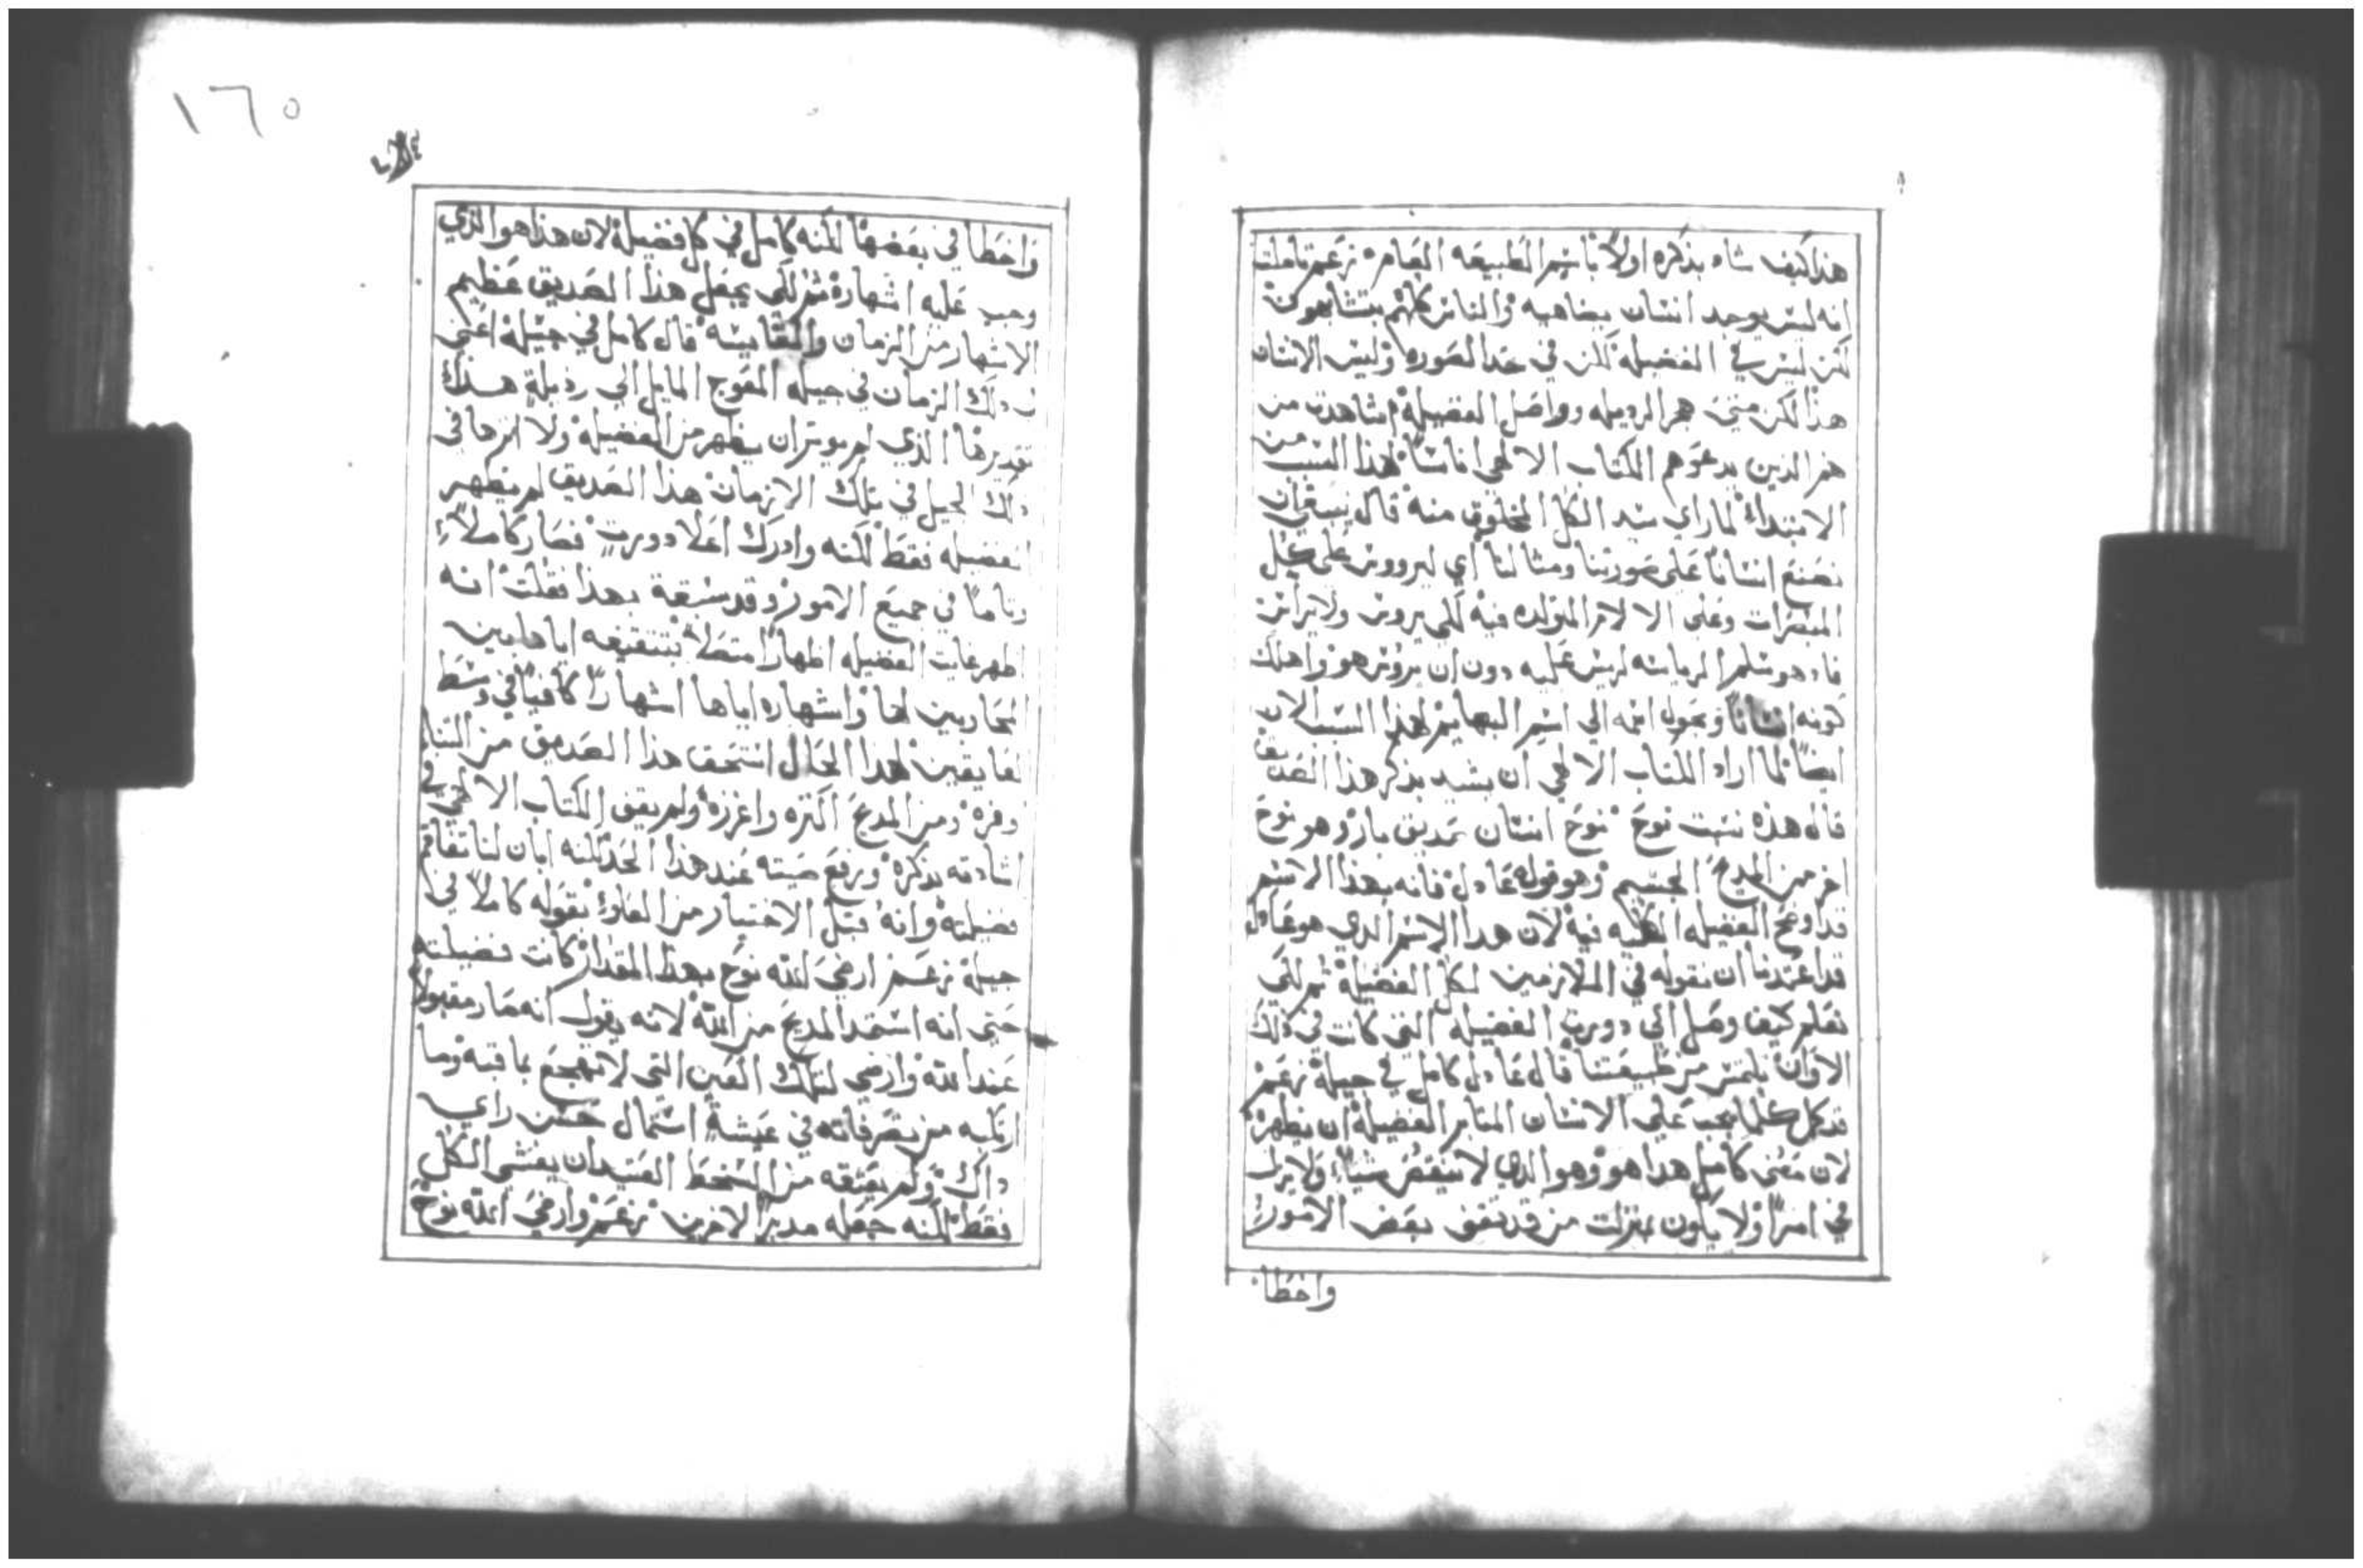 هذا كيف شاد بذكره اولاً باسم الطبيعه العامره زعم تاملت
انه ليس يوجد انسان يضاهيه والناس كلهم يتشابهون
لكن ليس في الفضيله لكن في حد الصوره وليس الانسان
هذا لكن متى هجر الرديله وواصل الفضيلة
هم الذين يدعوهم الكتاب الالهى اناسًا لهذا السبب من
الابتداء لما راي سيد الكل المخلوق منه قال
نصنع انسانًا على صورتنا ومثالنا أي ليرووس على كل
المبصرات وعلى الالام المتولده فيه لكي يروس ولا يرأس
فاد هو سلم الرياسه ليس عليه دون ان يروس هو واهلك
كونه انسانًا وتحول اسمه الي اسم البهايم لهذا السبب الان
ايضًا لما اراد الكتاب الالهي ان يشيد بذكر هذا الصديق
قال هذه نسبت نوح نوح انسان صديق بار وهو نوح
اخر من المديح الجسيم وهو قوله عادل فانه بهذا الاسم
قد اوضح الفضيله الكليه فيه لان هدا الاسم الدي هو عادل
قد اعتدنا ان نقوله في الملازمين لكل الفضيلة ثم لكى
نعلم كيف وصل الي دويرت الفضيله التى كانت في ذلك
الاوان تلتمس من طبيعتنا قال عادل كامل في جيلة زعم
قد كمل كلما يجب على الانسان المثابر الفضيلة ان يظهره
لان معنى كامل هدا هو وهو الدي لا ينقص شياً ولا يزل
في امرًا ولا يكون بمنزلت من قد تقف بعض الامور
واخطا
١٦٥
واخطا في بعضها لكنه كامل في كل فضيلة لان هذا هو الذي
وجب عليه اشهاره ثم لكى يجعل هذا الصديق عظيم
الاشهار من الزمان والمقايسة قال كامل في جيلة اعنى
في دلك الزمان في جيله المعوج المايل الي رذيلة هذا
تقديرها الذي لم يوثر ان يظهر من الفضيلة ولا اثرها في
دلك الجيل في تلك الازمان هذا الصديق لم يظهر
الفضيله فقط لكنه وادرك اعلا دويرت فصار كاملاً
وتاماً في جميع الامور وقد سبقة بهذا فقلت انه
اظهر غايت الفضيله اظهارًا متصلاً بتثقيفه اياها بين
المحاربين لها واشهاره اياها اشهارًا كافيًا في وسط
العايقين لهدا الحال استحق هذا الصديق من الثنا
وفره ومن المديح اكثره واغزره ولم يقف الكتاب الالهي في
اشادته بذكره ورفع صيته عند هذا الحد لكنه ابان لنا تفاقم
فضيلته وانه قبل الاختيار من العلو بقوله كاملاً في
جيلة زعم ارضى لله نوح بهذا المقدار كانت فضيلته
حتى انه استمد المديح من الله لانه يقول انه صار مقبولاً
عند الله وارضي لتلك العين التي لا تهجع بما قبه وما
ارتكبه من تصرفاته في عيشة استمال حسن راي
داك ولم يعتقه من السخط العتيد ان يغشي الكل
فقط لكنه جعله مدبر الاخرين زعم وارضى الله نوح